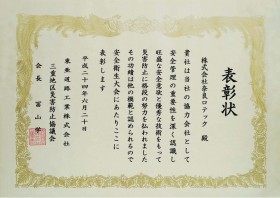 表彰状
株式会社奈良ロテック 殿
貴社は当社の協力会社として
安全管理の重要性を深く認識し
旺盛な安全意欲と優秀な技術をもって
災害防止に格段の努力を払われました
その功績は他の模範と認められるので
安全衛生大会にあたりここに
表彰します
平成二十四年六月二十日
東亜道路工業株式会社
三重地区災害防止協議会
会長 冨山